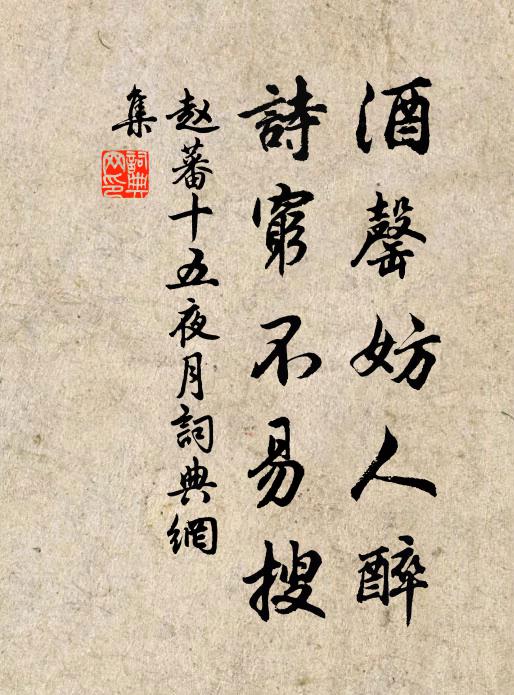 酒罄妨人醉
詩窮不易搜
赵蕃十五夜月詞典網
集
詞典
网印